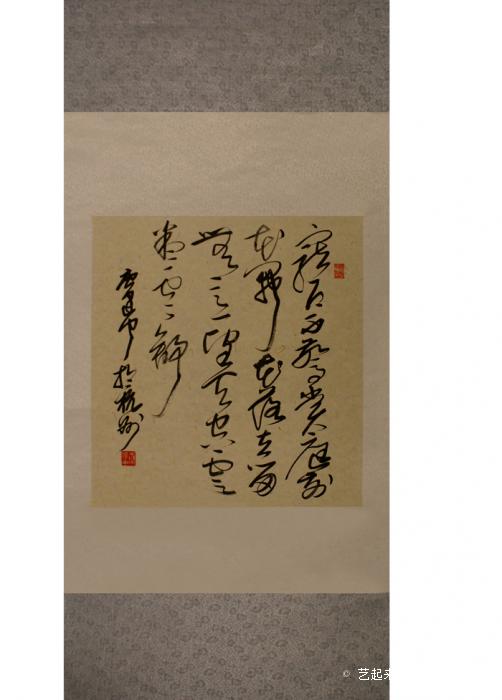 寵辱不驚看庭前
花開花落去留
無意望天空雲
卷雲舒
於杭州
© 艺起来